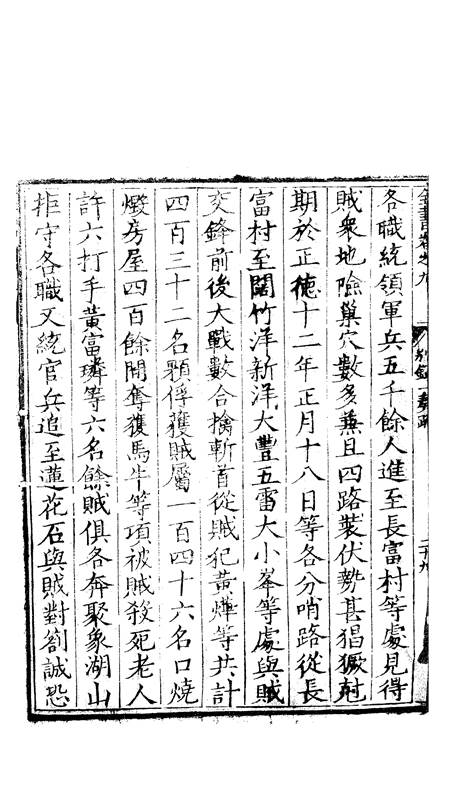 全書卷之九 別錄 奏疏
各職統領軍兵五千餘人進至長富村等處見得
賊衆地險巢穴數多兼且四路裝伏勢甚猖獗尅
期於正德十二年正月十八日等各分哨路從長
富村至闊竹洋新洋大豐五雷大小峯等處與賊
交鋒前後大戰數合擒斬首從賊犯黃燁等共計
四百三十二名顆俘獲賊屬一百四十六名口燒
燬房屋四百餘間奪獲馬牛等項被賊殺死老人
許六打手黃富璘等六名餘賊俱各奔聚象湖山
拒守各職又統官兵追至蓮花石與賊對劄誠恐